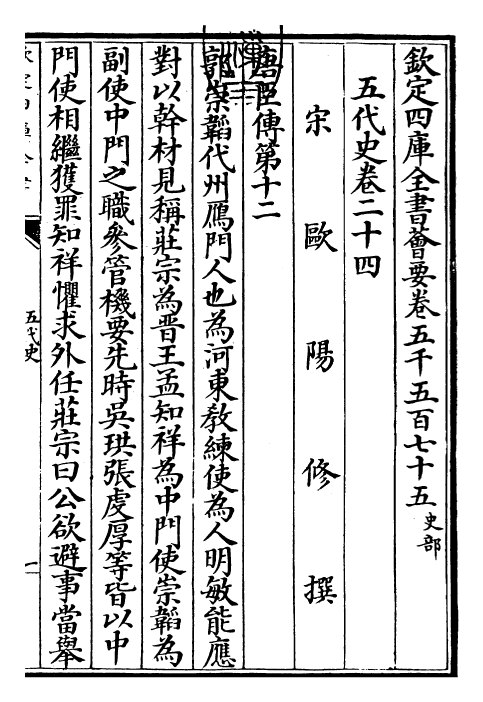 欽定四庫全書薈要卷五千五百七十五 史部
五代史卷二十四
宋 歐陽修 撰
唐臣傳第十二
郭崇韜代州鴈門人也為河東教練使為人明敏能應
對以幹材見稱莊宗為晋王孟知祥為中門使崇韜為
副使中門之職參管機要先時吳珙張虔厚等皆以中
門使相繼獲罪知祥懼求外任莊宗曰公欲避事當舉
五代史
一